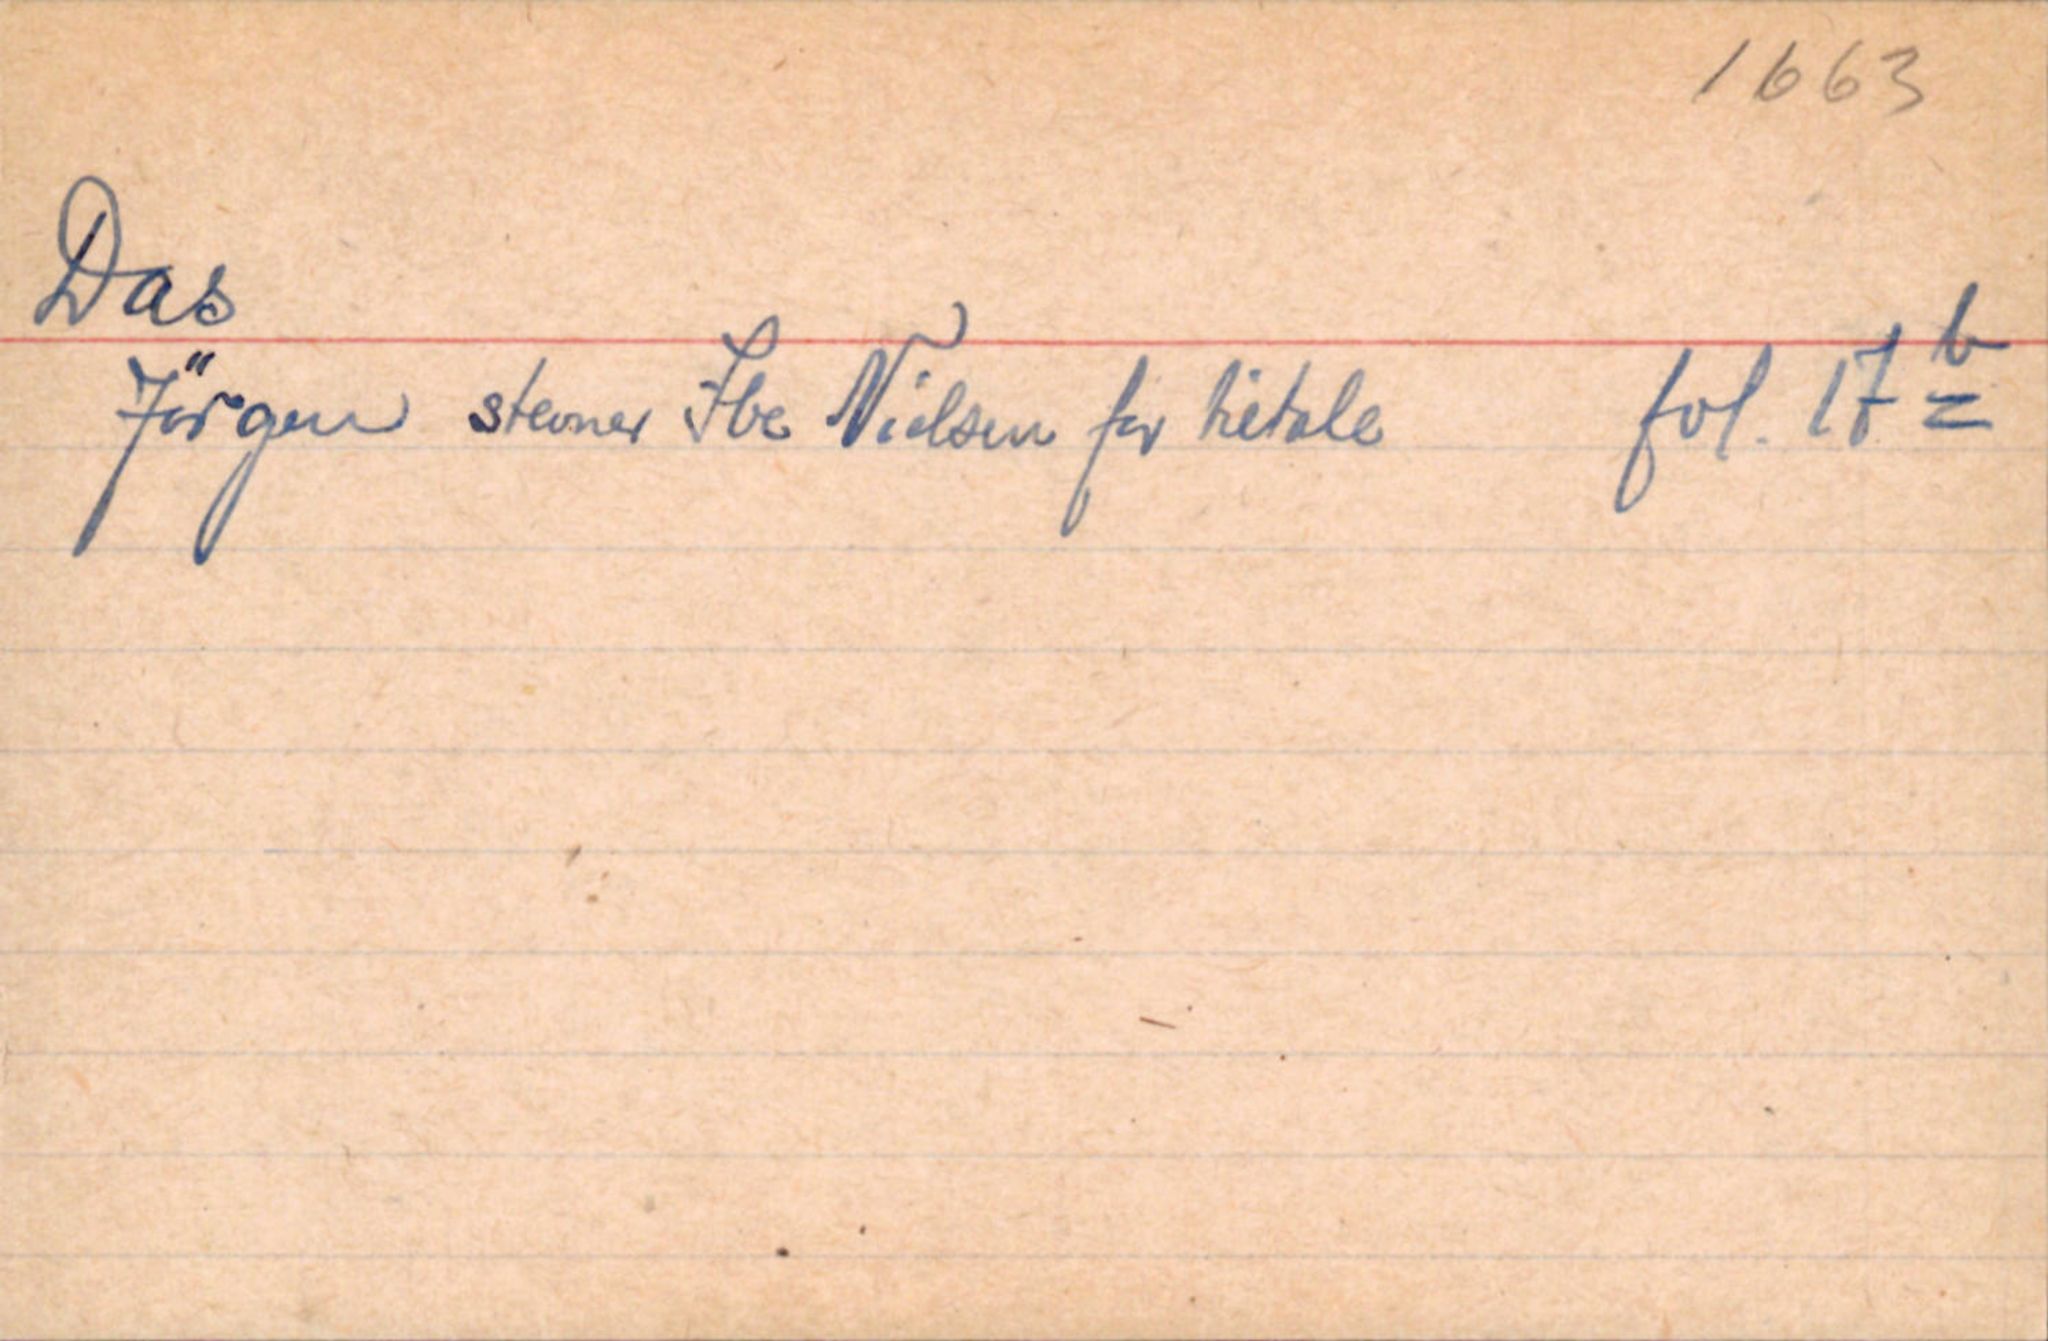 1663
Das
Jörgen stevner Ibe Nielsen for tietale fol. 17 b